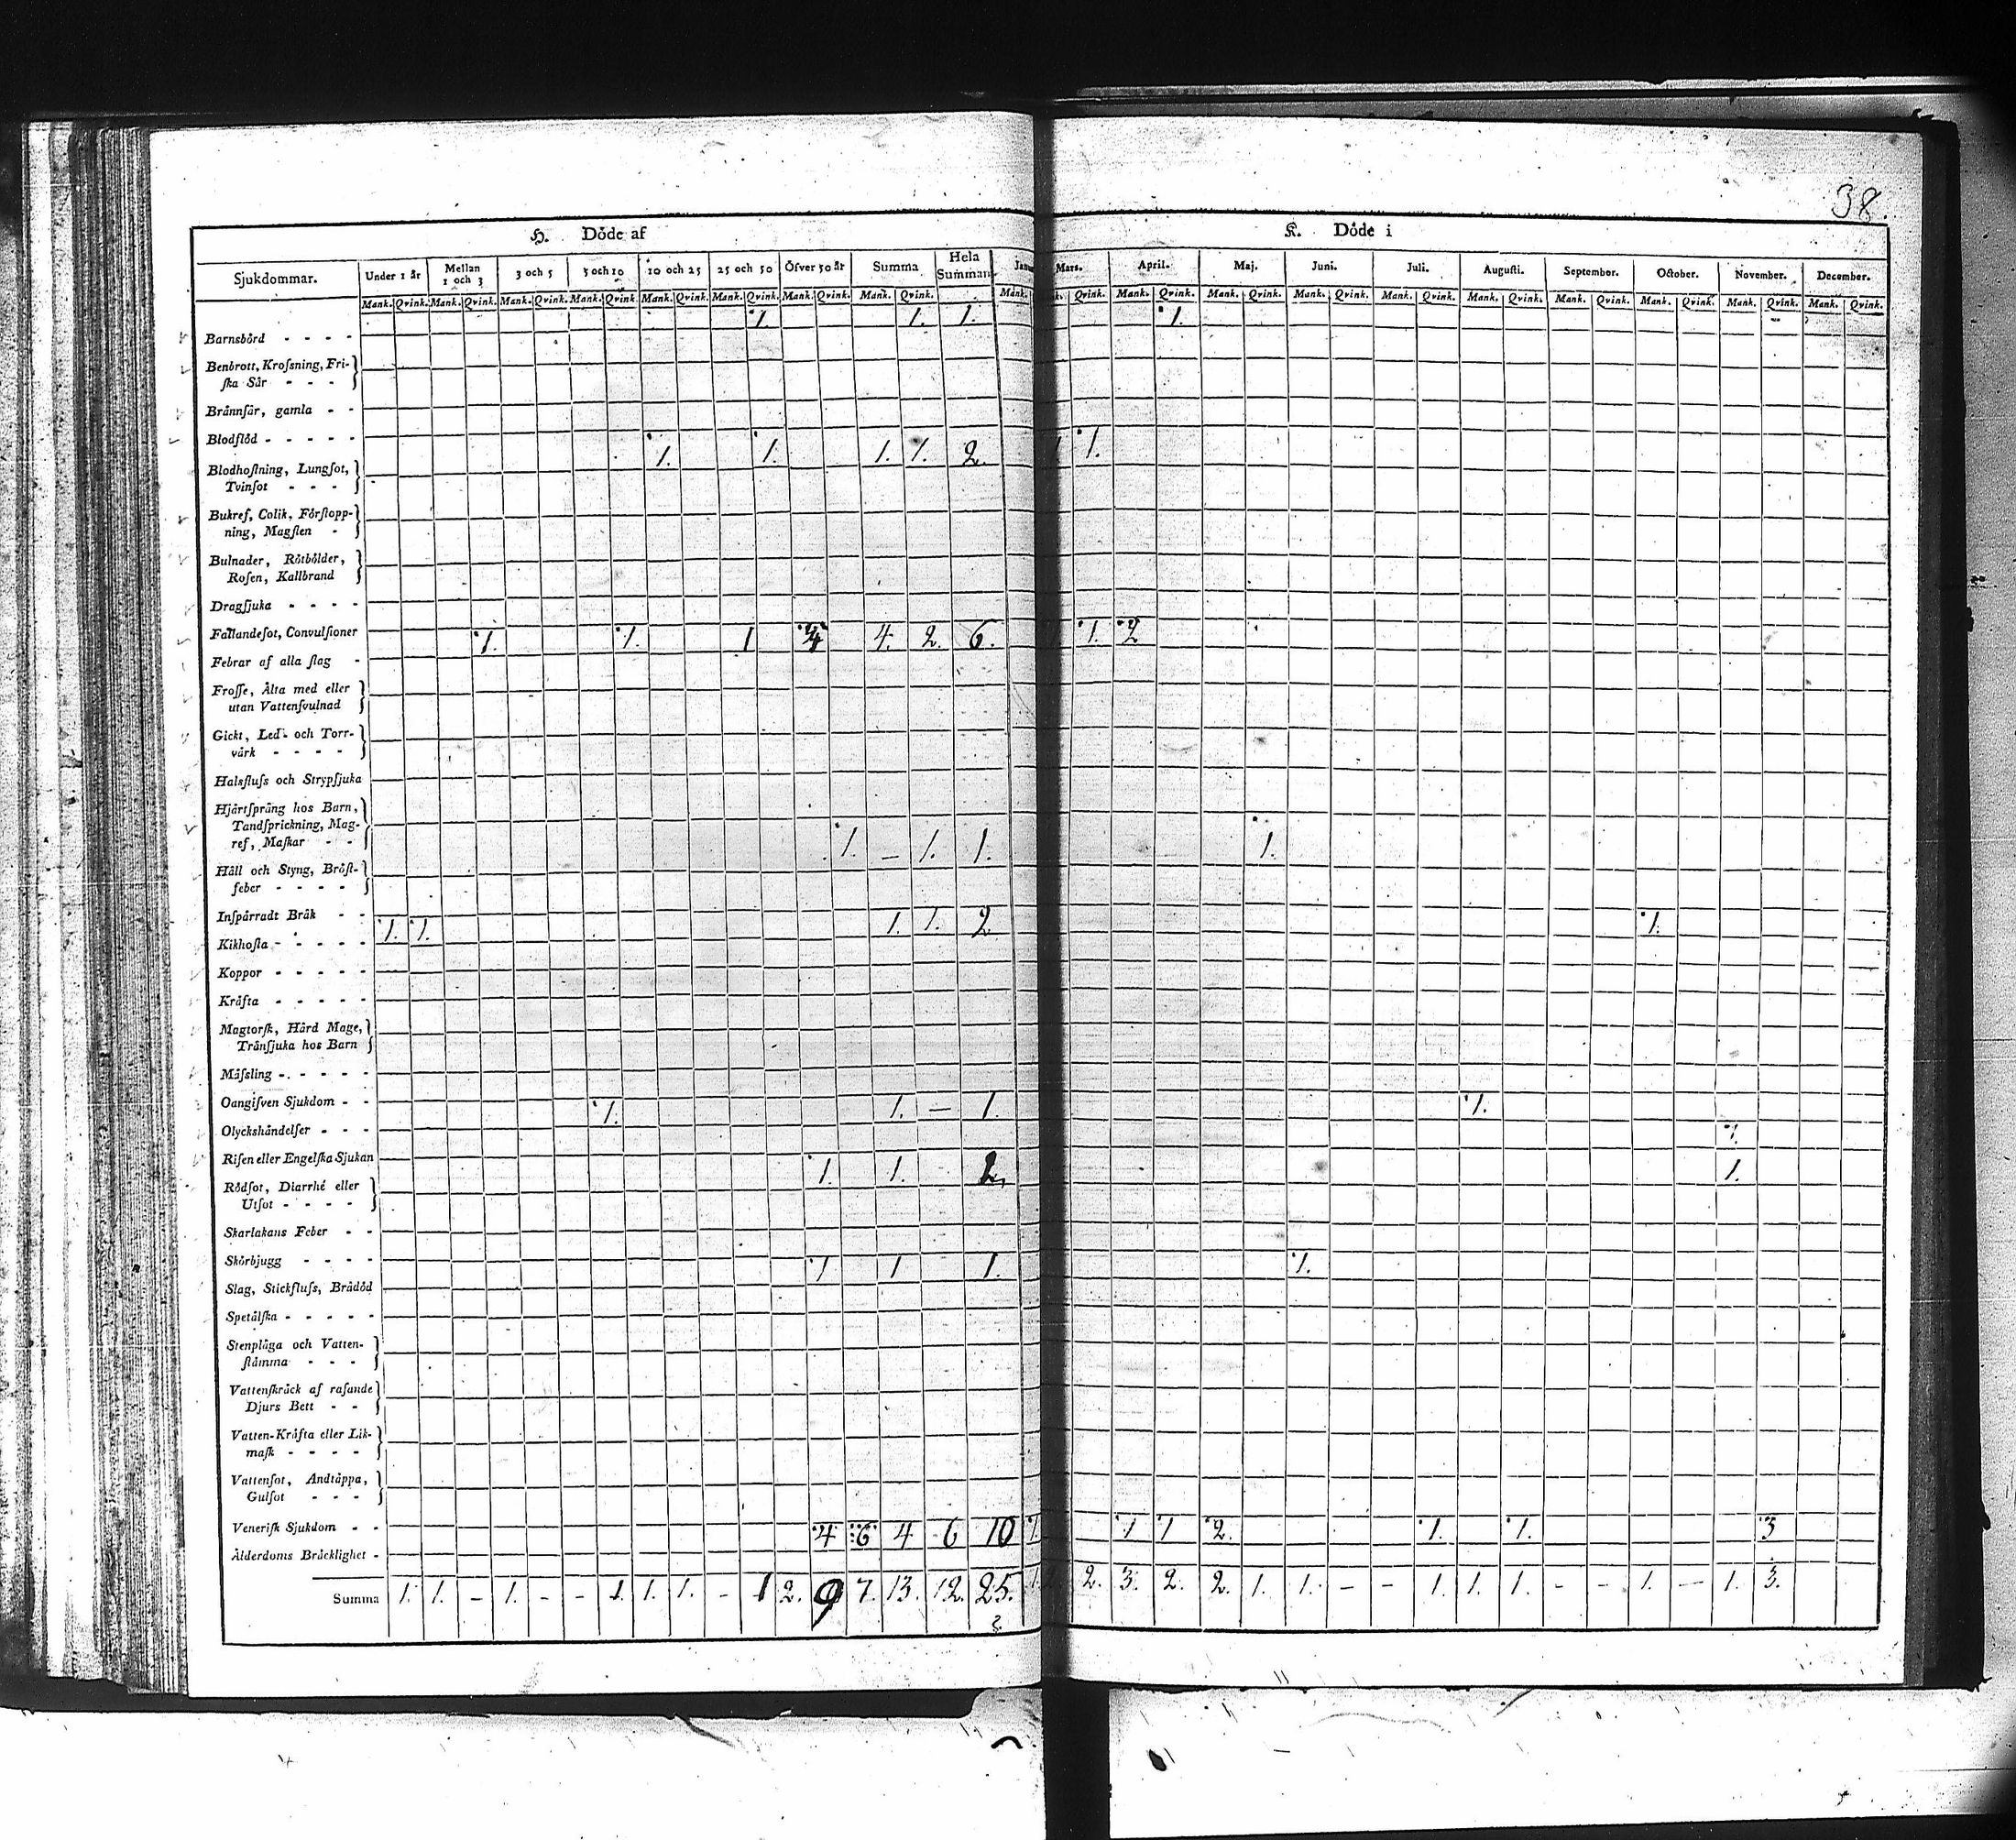 38.
H. Döde af
K. Döde i
Sjukdommar. Under 1 år Mellan 1 och 3 3 och 5 5 och 10 10 och 25 25 och 50 Öfver 50 år Summa Hela Summan Mars. April. Maj. Juni. Juli. Augusti. September. October. November. December.
Mank. Qvink. Mank. Qvink. Mank. Qvink. Mank. Qvink. Mank. Qvink. Mank. Qvink. Mank. Qvink. Mank. Qvink. Mank. Qvink. Mank. Qvink. Mank. Qvink. Mank. Qvink. Mank. Qvink. Mank. Qvink. Mank. Qvink. Mank. Qvink. Mank. Qvink. Mank. Qvink.
Barnsbörd - - - - 1. 1. 1. 1.
Benbrott, Kroſsning, Fri-
ſka Sår - - -
Brännſår, gamla - -
Blodflöd - - - - -
Blodhoſtning, Lungſot,
Tvinſot - - - 1. 1. 1. 1. 2. 1.
Bukref, Colik, Förſtopp-
ning, Magſten -
Bulnader, Rötbölder,
Roſen, Kallbrand
Dragſjuka - - - -
Fallandeſot, Convulſioner
Febrar af alla ſlag - 1. 1. 1 4. 2. 6. 1. 2
Froſſe, Älta med eller
utan Vattenſvulnad
Gickt, Led- och Torr-
värk - - - -
Halsfluſs och Strypſjuka
Hjärtſpräng hos Barn,
Tandſprickning, Mag-
ref, Maſkar - -
Håll och Styng, Bröſt-
feber - - - - 1. - 1. 1. 1.
Inſpärradt Bråk - -
Kikhoſta - - - - - 1. 1. 1. 1. 2 1.
Koppor - - - - -
Kräfta - - - - -
Magtorſk, Hård Mage,
Tränſjuka hos Barn
Mäſsling - - - - -
Oangifven Sjukdom - -
Olyckshändelſer - - - 1. 1. - 1. 1. 1.
Riſen eller Engelſka Sjukan
Rödſot, Diarrhé eller
Utſot - - - - 1. 1. 1.
Skarlakans Feber - -
Skörbjugg - - - -
Slag, Stickfluſs, Brådöd 1 1 1. 1.
Spetälſka - - - - -
Stenplåga och Vatten-
ſtämma - - -
Vattenſkräck af raſande
Djurs Bett - -
Vatten-Kräfta eller Lik-
maſk - - - -
Vattenſot, Andtäppa,
Gulſot - - -
Veneriſk Sjukdom - -
Ålderdoms Bräcklighet - 4 6 4 6 10 1. 1 1 2. 1. 1. 3
Summa 1. 1. - 1. - - 1. 1. 1. - 1 2. 9 7. 13. 12. 25. 1. 2. 3. 2. 2. 1. 1. - - 1. 1. 1. - - 1. - 1. 3.